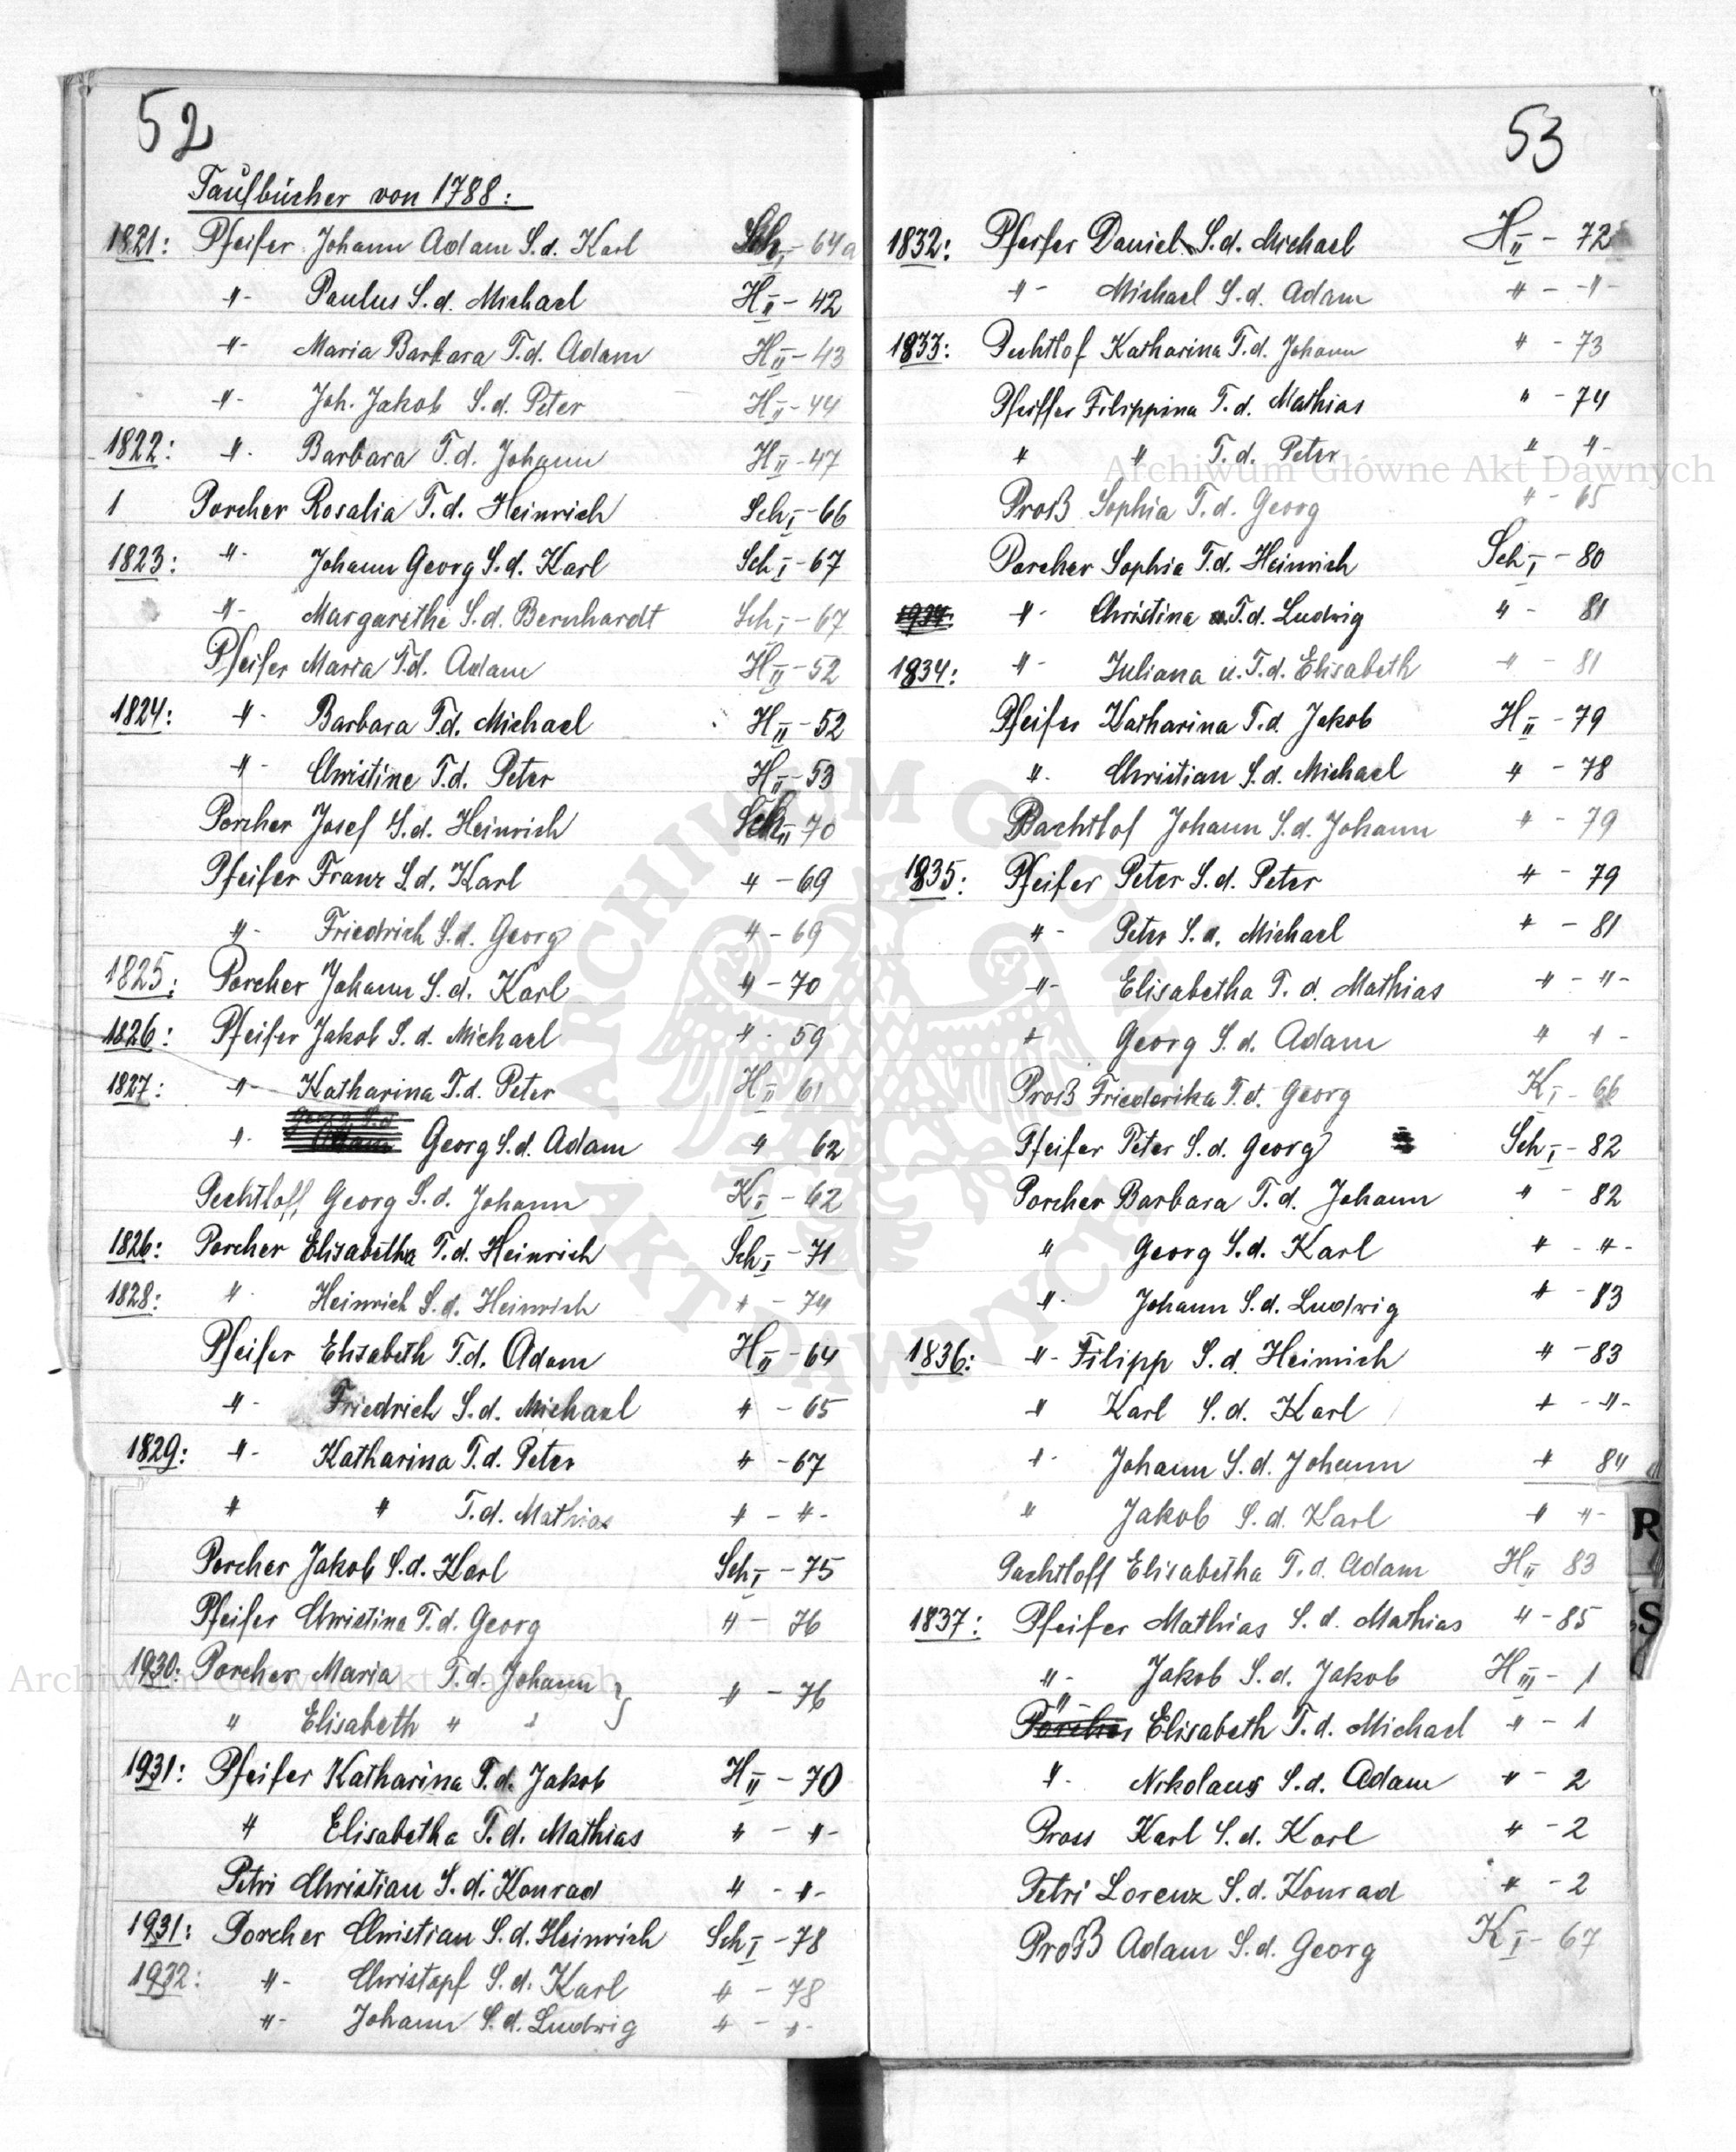 52
Taufbücher von 1788:
1821: Pfeifer Johann Adam S.d. Karl Sch I - 64a
-"- Paulus S.d. Michael H II - 42
-"- Maria Barbara T.d. Adam H II - 43
-"- Joh. Jakob S.d. Peter H II - 44
1822: -"- Barbara T.d. Johann H II - 47
1 Porcher Rosalia T.d. Heinrich Sch I - 66
1823: -"- Johann Georg S.d. Karl Sch I - 67
-"- Margarethe S.d. Bernhardt Sch I - 67
Pfeifer Maria T.d. Adam H II - 52
1824: -"- Barbara T.d. Michael H II - 52
-"- Christine T.d. Peter H II - 53
Porcher Josef S.d. Heinrich Sch II 70
Pfeifer Franz S.d. Karl " - 69
-"- Friedrich S.d. Georg " - 69
1825: Porcher Johann S.d. Karl " - 70
1826: Pfeifer Jakob S.d. Michael " - 59
1827: -"- Katharina T.d. Peter H II 61
-"- Georg S.d. Adam " 62
Pechtloff Georg S.d. Johann K I - 62
1826: Porcher Elisabetha T.d. Heinrich Sch I - 71
1828: " Heinrich S.d. Heinrich " - 74
Pfeifer Elisabeth T.d. Adam H II - 64
-"- Friedrich S.d. Michael " - 65
1829: -"- Katharina T.d. Peter " - 67
" " T.d. Mathias " - " -
Porcher Jakob S.d. Karl Sch I - 75
Pfeifer Christina T.d. Georg " - 76
1930: Porcher Maria T.d. Johann } " - 76
" Elisabeth " "
1931: Pfeifer Katharina T.d. Jakob H II - 70
" Elisabetha T.d. Mathias " - " -
Petri Christian S.d. Konrad " - " -
1931: Porcher Christian S.d. Heinrich Sch I - 78
1932: -"- Christopf S.d. Karl " - 78
-"- Johann S.d. Ludwig " - " -
53
1832: Pfeifer Daniel S.d. Michael H II - 72
-"- Michael S.d. Adam " - " -
1833: Pechtlof Katharina T.d. Johann " - 73
Pfeiffer Filippina T.d. Mathias " - 74
" " T.d. Peter " " -
Proß Sophia T.d. Georg " - 65
Porcher Sophia T.d. Heinrich Sch I - 80
-"- Christina T.d. Ludwig " - 81
1834: -"- Juliana u. T.d. Elisabeth " - 81
Pfeifer Katharina T.d. Jakob H II - 79
". Christian S.d. Michael " - 78
Bachtlof Johann S.d. Johann " - 79
1835: Pfeifer Peter S.d. Peter " - 79
-"- Peter S.d. Michael " - 81
-"- Elisabetha T.d. Mathias " - " -
" Georg S.d. Adam " " -
Proß Friederika T.d. Georg K I - 66
Pfeifer Peter S.d. Georg Sch I - 82
Porcher Barbara T.d. Johann " - 82
" Georg S.d. Karl " - " -
". Johann S.d. Ludwig " - 83
1836: -"- Filipp S.d. Heinrich " - 83
" Karl S.d. Karl " - " -
". Johann S.d. Johann " 84
" Jakob S.d. Karl " " -
Pachtloff Elisabetha T.d. Adam H II 83
1837: Pfeifer Mathias S.d. Mathias " - 85
-"- Jakob S.d. Jakob H III - 1
-"- Porcher Elisabeth T.d. Michael " - 1
". Nikolaus S.d. Adam " - 2
Pross Karl S.d. Karl " - 2
Petri Lorenz S.d. Konrad " - 2
Proß Adam S.d. Georg K I - 67
R
S
Archiwum Główne Akt Dawnych
Archiwum Główne Akt Dawnych
ARCHIWUM GŁÓWNE AKT DAWNYCH